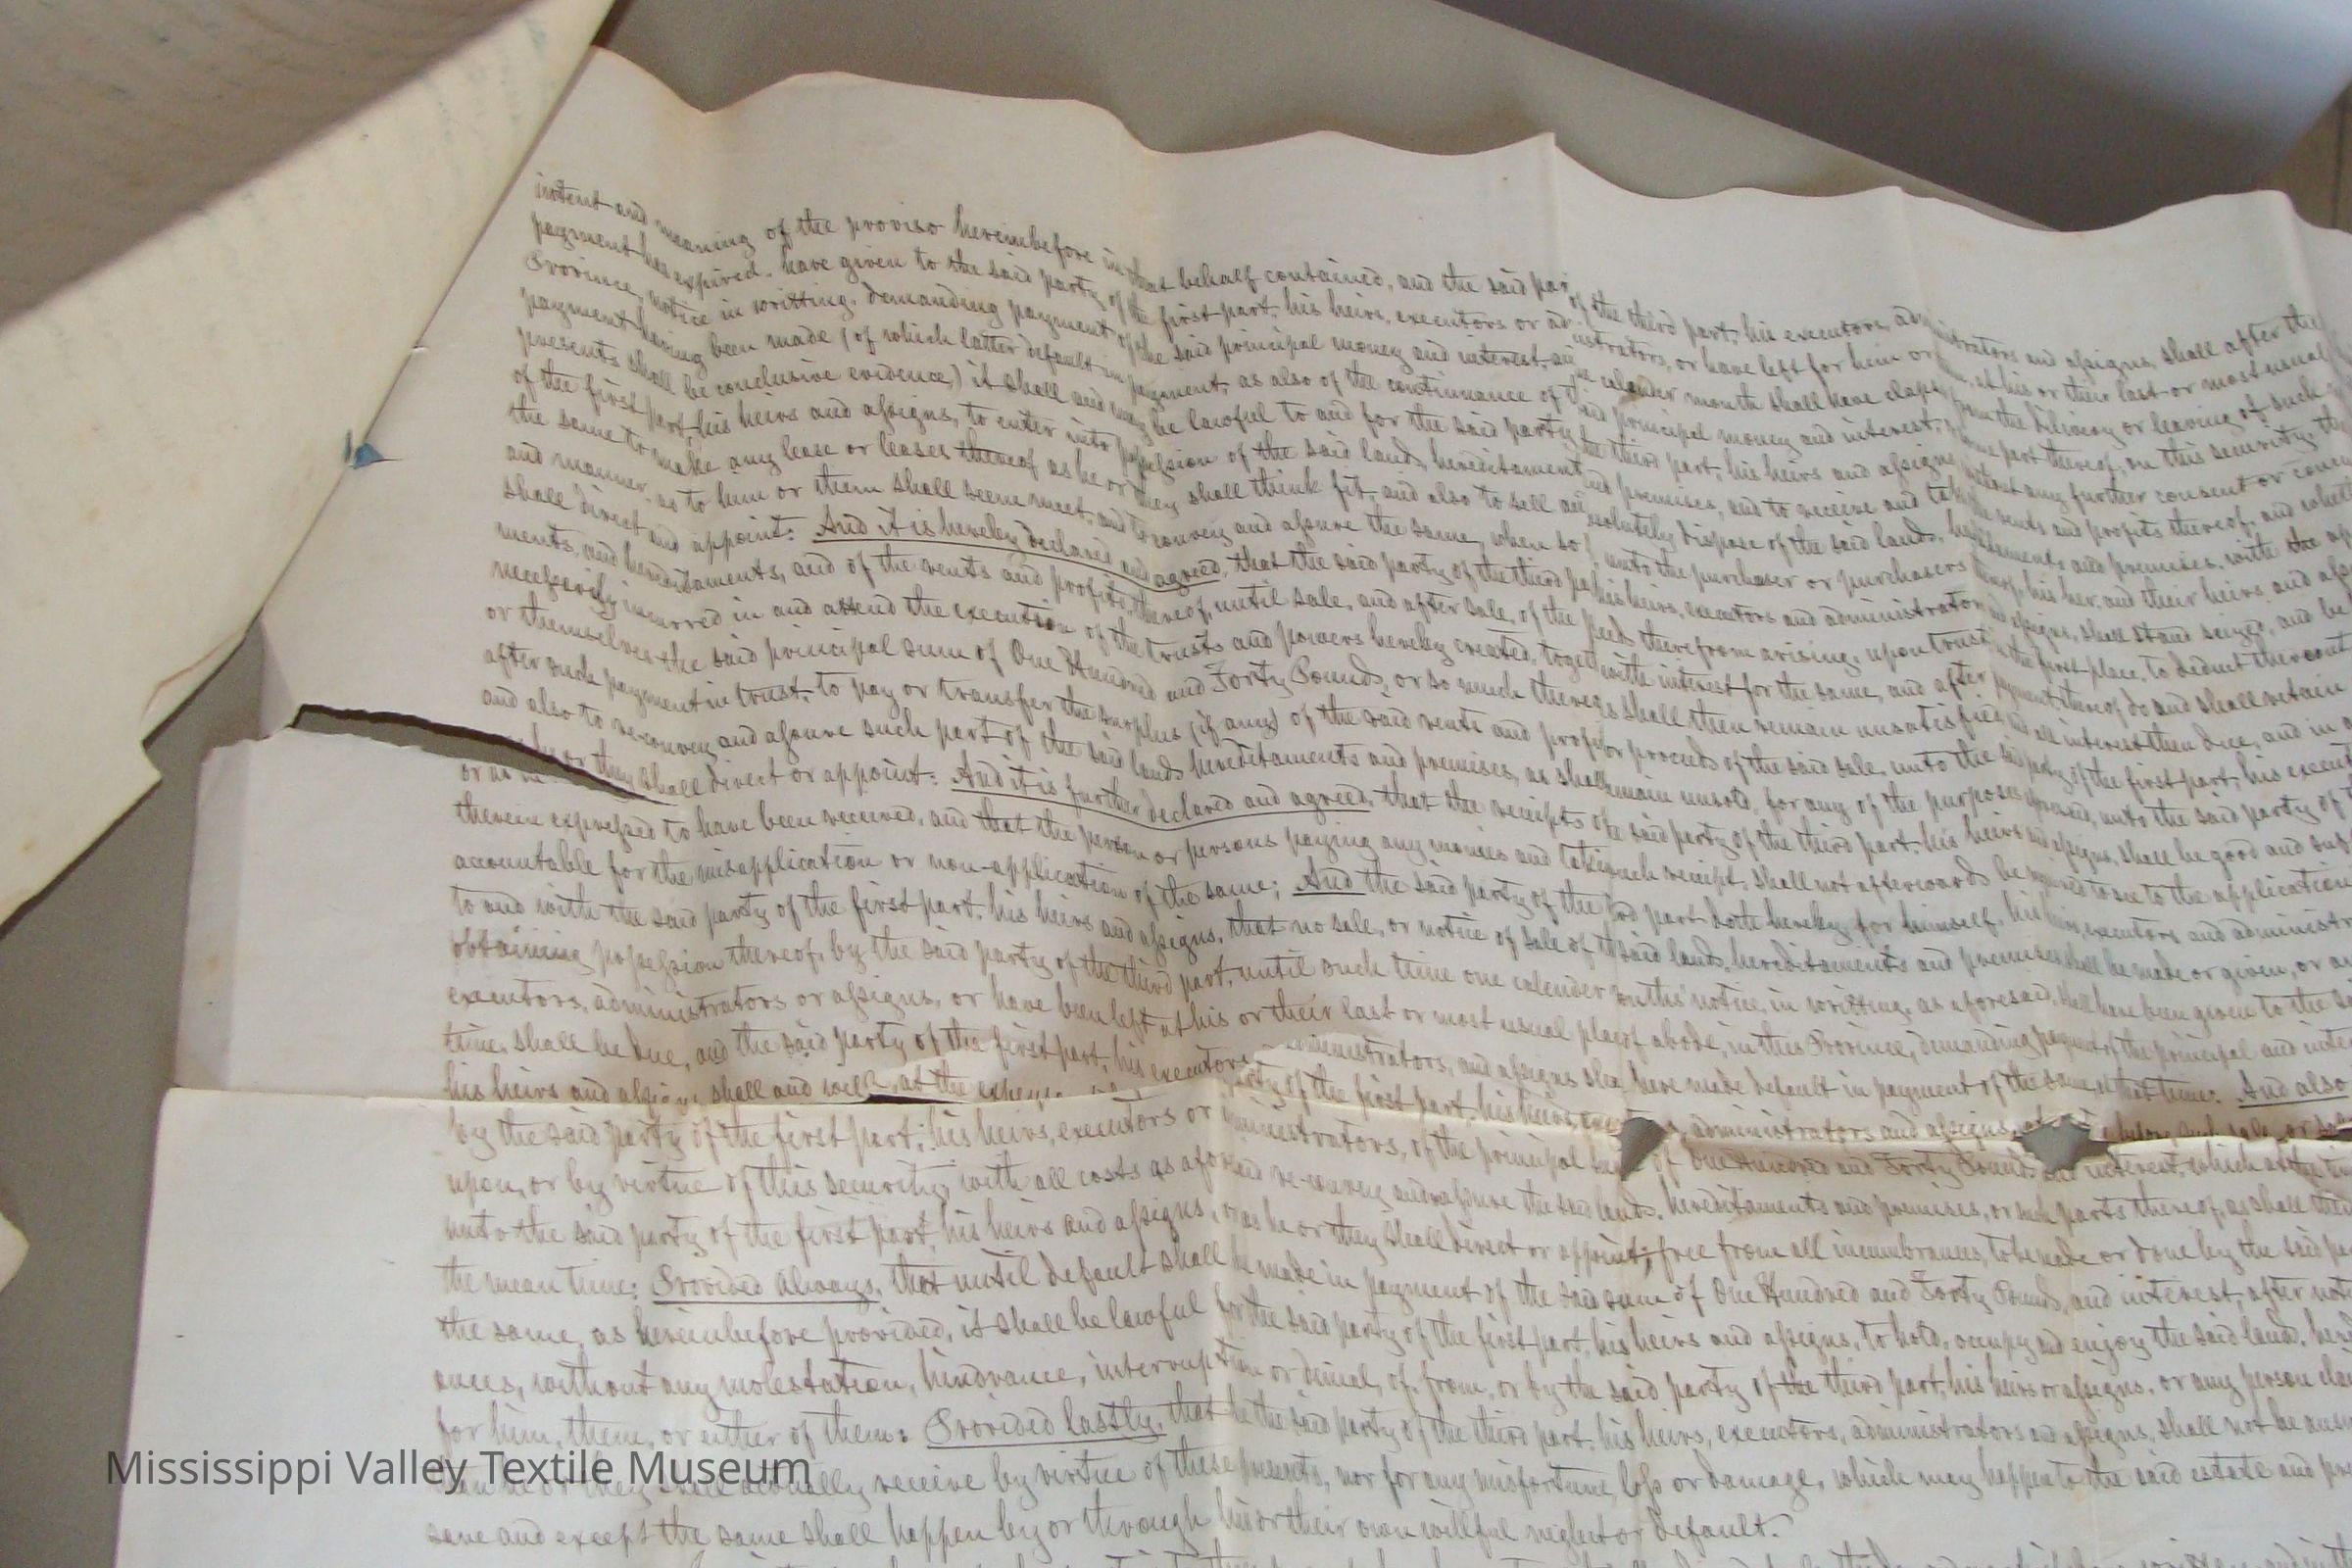 intent and meaning of the proviso hereinbefore in that behalf contained, and the said par of the third part, his executors, ad istrators and assigns, shall after the
payment has expired, have given to the said party of the first part, his heirs, executors or ad istrators, or have left for him or at his or their last or most usual
Province, notice in writting, demanding payment of the said principal money and interest, an one calender month shall have elaps from the delivery or leaving of such
payment having been made (of which latter default in payment, as also of the continuance of th said principal money and interest, some part thereof, on this security, the
presents shall be conclusive evidence,) it shall and may be lawful to and for the said party the third part, his heirs and assigns without any further consent or concu
of the first part, his heirs and assigns, to enter into possession of the said lands, hereditaments and premises, and to receive and take the rents and profits thereof, and wheth
the same to make any lease or leases thereof as he or they shall think fit, and also to sell and absolutely dispose of the said lands, hereditaments and premises, with the ap
and manner, as to him or them shall seem meet, and to convey and assure the same, when so unto the purchaser or purchasers thereof, his her, and their heirs and ass
shall direct and appoint: And it is hereby declared and agreed, that the said party of the third pa his heirs, executors and administrators and assigns, shall stand seized, and be
ments, and hereditaments, and of the rents and profits, thereof, until sale, and after sale, of the therefrom arising, upon trust in the first place, to deduct thereout
necessarily incurred in and attend the execution of the trusts and powers hereby created, toget with interest for the same, and after payment thereof do and shall retain
or themselves the said principal sum of One Hundred and Forty Pounds, or so much thereof as shall then remain unsatisfied, and all interest then due, and in
after such payment in trust, to pay or transfer the surplus (if any) of the said rents and profits or proceeds of the said sale, unto the said party of the first part, his execut
and also to re-convey and assure such part of the said lands hereditaments and premises, as shall remain unsold, for any of the purposes unto the said party of
or as he or they shall direct or appoint: And it is further declared and agreed, that the receipts of the said party of the third part, his heirs and assigns, shall be good and suf
therein expressed to have been received, and that the person or persons paying any monies and taking such receipt, shall not afterwards be required to see to the application
accountable for the misapplication or non-application of the same; And the said party of the third part doth hereby, for himself, his heirs, executors and administr
to and with the said party of the first part, his heirs and assigns, that no sale, or notice of sale of the said lands, hereditaments and premises shall be made or given, or an
obtaining possession thereof, by the said party of the third part, until such time one calender months' notice, in writting, as aforesaid, shall have been given to the sa
executors, administrators or assigns, or have been left at his or their last or most usual place of abode, in this Province, demanding payment of the principal and inte
time, shall be due, and the said party of the first part, his executors administrators, and assigns shall have made default in payment of the same, at that time: And also
his heirs and assigns, shall and will, at the expense party of the first part, his heirs, administrators and assigns, before such sale, or
by the said party of the first part, his heirs, executors or administrators, of the principal of One Hundred and Forty Pounds and interest, which at the ti
upon, or by virtue of this security, with all costs as aforesaid re-convey and assure the said lands, hereditaments and premises, or such parts thereof, as shall then
unto the said party of the first part, his heirs and assigns, or as he or they shall direct or appoint; free from all incumbrances, to be made or done by the said pa
the mean time: Provided Always, that until default shall be made in payment of the said sum of One Hundred and Forty Pounds, and interest, after noti
the same, as hereinbefore provided, it shall be lawful for the said party of the first part, his heirs and assigns, to hold, occupy and enjoy the said land, here
ances, without any molestation, hindrance, interruption or denial, of, from, or by the said party of the third part, his heirs or assigns, or any person clai
for him, them, or either of them: Provided lastly, that he the said party of the third part, his heirs, executors, administrators and assigns, shall not be answ
than he or they shall actually receive by virtue of these presents, nor for any misfortune, loss or damage, which may happen to the said estate and pre
save and except the same shall happen by or through his or their own willful neglect or default.
Mississippi Valley Textile Museum